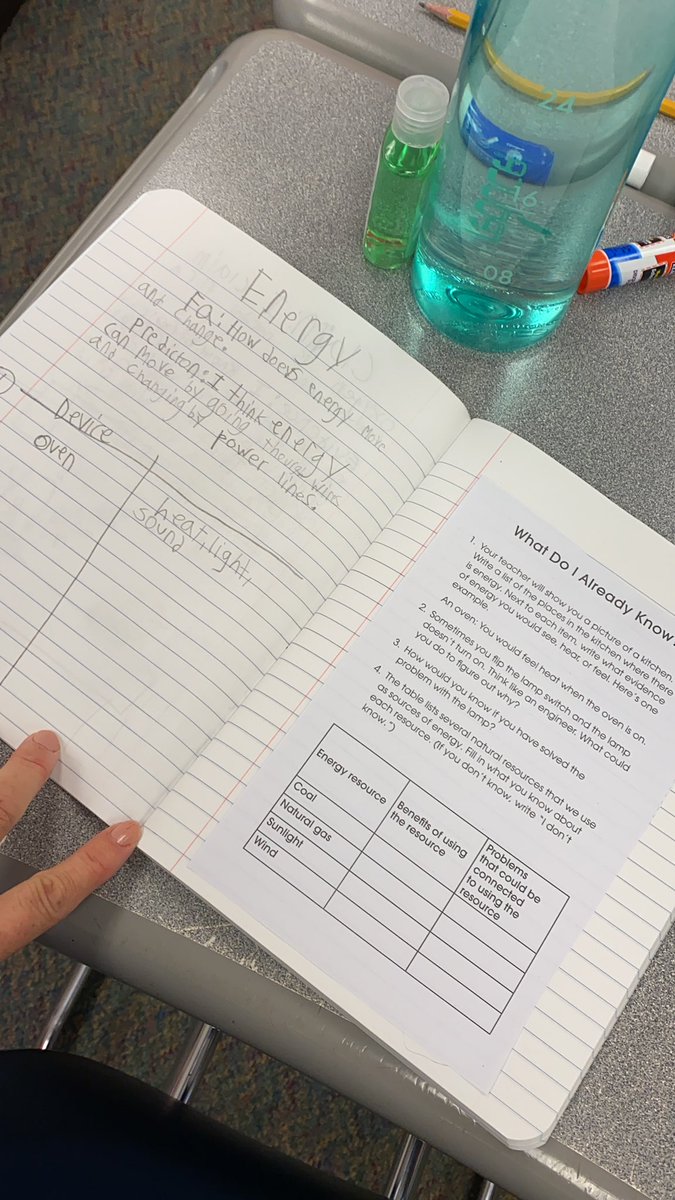 Energy
Eq: How does energy move
and change.
Prediction: I think energy
can move by going
and changing by power lines.
Device
oven
heat, light,
sound
What Do I Already Know?
1. Your teacher will show you a picture of a kitchen.
Write a list of the places in the kitchen where there
is energy. Next to each item, write what evidence
of energy you would see, hear, or feel. Here's one
example.
An oven: You would feel heat when the oven is on.
2. Sometimes you flip the lamp switch and the lamp
doesn't turn on. Think like an engineer. What could
you do to figure out why?
3. How would you know if you have solved the
problem with the lamp?
4. The table lists several natural resources that we use
as sources of energy. Fill in what you know about
each resource. (If you don't know, write "I don't
know.")
Energy resource
Benefits of using
the resource
Problems
that could be
connected
to using the
resource
Coal
Natural gas
Sunlight
Wind
24
16
08